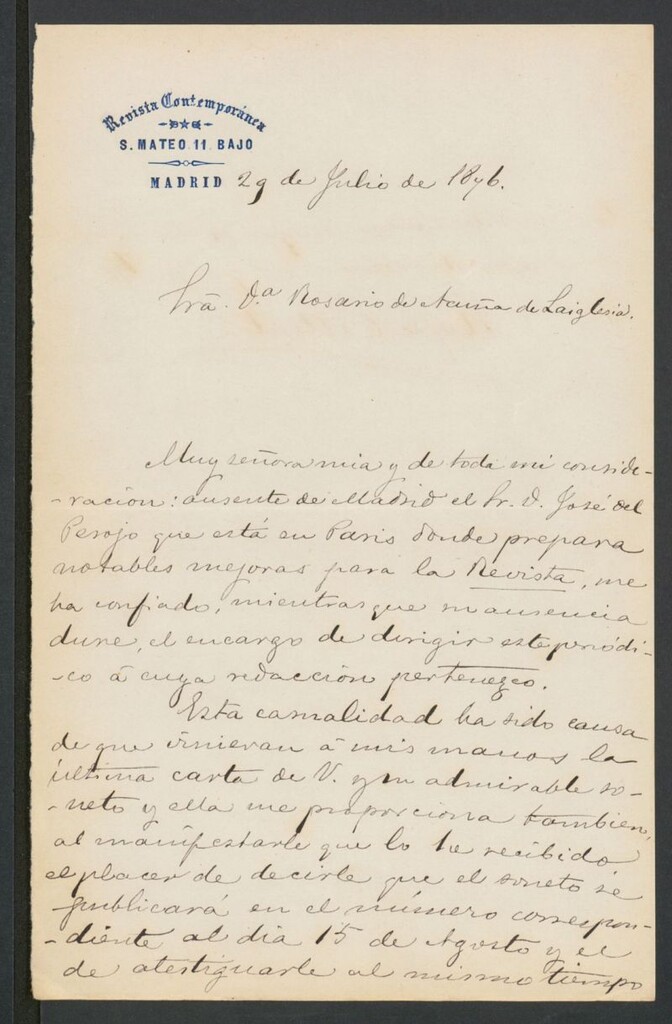 Revista Contemporánea
S. MATEO 11 BAJO
MADRID 29 de Julio de 1876.
Sra. D.a Rosario de Acuña de Laiglesia.
Muy señora mia y de toda mi conside-
-ración: ausente de Madrid el Sr. D. José del
Perojo que está en Paris donde prepara
notables mejoras para la Revista, me
ha confiado, mientras que su ausencia
dure, el encargo de dirigir este periódi-
-co á cuya redacción pertenezco.
Esta casualidad ha sido causa
de que vinieran á mis manos la
última carta de V. y su admirable so-
-neto y ella me proporciona tambien,
al manifestarle que lo he recibido
el placer de decirle que el soneto se
publicará en el número correspon-
-diente al dia 15 de Agosto y el
de atestiguarle al mismo tiempo